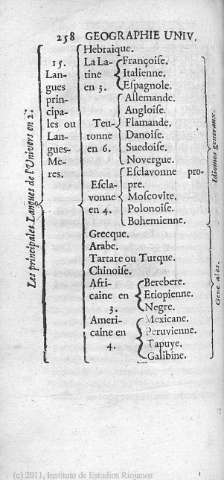 258 GEOGRAPHIE UNIV.
Les principales Langues de l'Univers en 2:
15.
Langues
principales
ou
Langues-
Meres.
Hebraique.
La Latine
en 3.
Françoise.
Italienne.
Espagnole.
Teutonne
en 6.
Allemande.
Angloise.
Flamande.
Danoise.
Suedoise.
Novergue.
Esclavonne
en 4.
Esclavonne propre.
Moscovite,
Polonoise.
Bohemienne.
Grecque.
Arabe.
Tartare ou Turque.
Chinoise.
Africaine en
3.
Berebere.
Etiopienne.
Negre.
Americaine en
4.
Mexicane.
Peruvienne.
Tapuye.
Galibine.
(c) 2011, Instituto de Estudios Riojanos